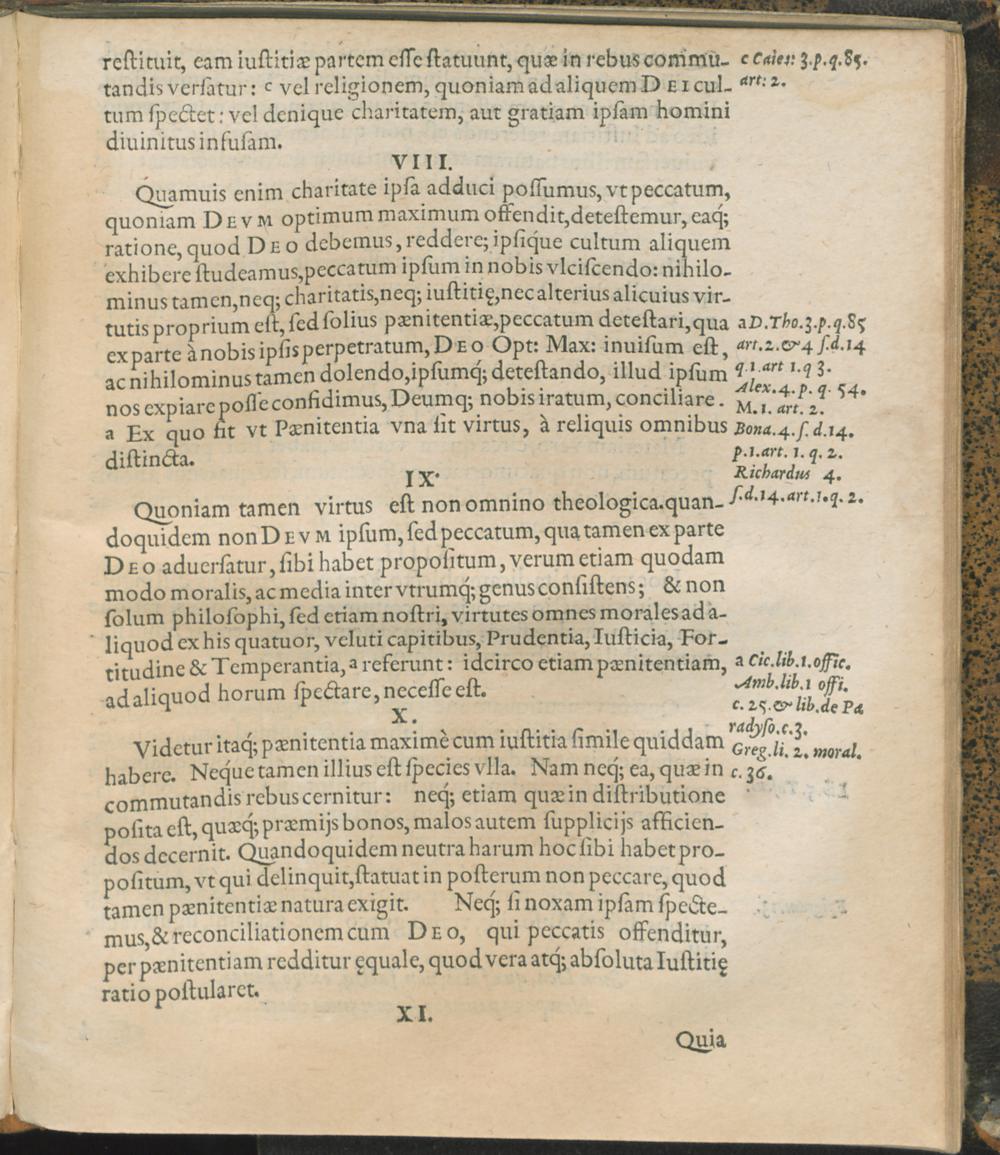 reſtituit, eam iuſtitiæ partem eſſe ſtatuunt, quæ in rebus commū-
tandis verſatur: c vel religionem, quoniam ad aliquem DEI cul-
tum ſpectet: vel denique charitatem, aut gratiam ipſam homini
diuinitus infuſam.
c Caiet: 3.p.q.85.
art: 2.
VIII.
Quamuis enim charitate ipſa adduci poſſumus, vt peccatum,
quoniam DEVM optimum maximum offendit, deteſtemur, eaq́;
ratione, quod DEO debemus, reddere; ipſiq́ue cultum aliquem
exhibere ſtudeamus, peccatum ipſum in nobis vlciſcendo: nihilo-
minus tamen, neq; charitatis, neq; iuſtitię, nec alterius alicuius vir-
tutis proprium eſt, ſed ſolius pænitentiæ, peccatum deteſtari, qua
ex parte à nobis ipſis perpetratum, DEO Opt: Max: inuiſum eſt,
ac nihilominus tamen dolendo, ipſumq́; deteſtando, illud ipſum
nos expiare poſſe confidimus, Deumq; nobis iratum, conciliare.
a Ex quo fit vt Pænitentia vna ſit virtus, à reliquis omnibus
diſtincta.
a D.Tho.3.p.q.85
art.2.& 4 ſ.d.14
q.1.art 1.q 3.
Alex.4.p. q. 54.
M.1. art. 2.
Bona.4.ſ. d.14.
p.1.art. 1. q. 2.
Richardus 4.
ſ.d.14.art.1.q. 2.
IX.
Quoniam tamen virtus eſt non omnino theologica. quan-
doquidem non DEVM ipſum, ſed peccatum, qua tamen ex parte
DEO aduerſatur, ſibi habet propoſitum, verum etiam quodam
modo moralis, ac media inter vtrumq́; genus conſiſtens; & non
ſolum philoſophi, ſed etiam noſtri, virtutes omnes morales ad a-
liquod ex his quatuor, veluti capitibus, Prudentia, Iuſticia, For-
titudine & Temperantia, a referunt: idcirco etiam pænitentiam,
ad aliquod horum ſpectare, neceſſe eſt.
a Cic.lib.1.offic.
Amb.lib.1 offi.
c. 25.& lib.de Pa
radyſo.c.3.
Greg.li. 2. moral.
c. 36.
X.
Videtur itaq; pænitentia maximè cum iuſtitia ſimile quiddam
habere. Neq́ue tamen illius eſt ſpecies vlla. Nam neq; ea, quæ in
commutandis rebus cernitur: neq; etiam quæ in diſtributione
poſita eſt, quæq́; præmijs bonos, malos autem ſupplicijs afficien-
dos decernit. Quandoquidem neutra harum hoc ſibi habet pro-
poſitum, vt qui delinquit, ſtatuat in poſterum non peccare, quod
tamen pænitentiæ natura exigit. Neq́; ſi noxam ipſam ſpecte-
mus, & reconciliationem cum DEO, qui peccatis offenditur,
per pænitentiam redditur ęquale, quod vera atq́; abſoluta Iuſtitię
ratio poſtularet.
XI.
Quia